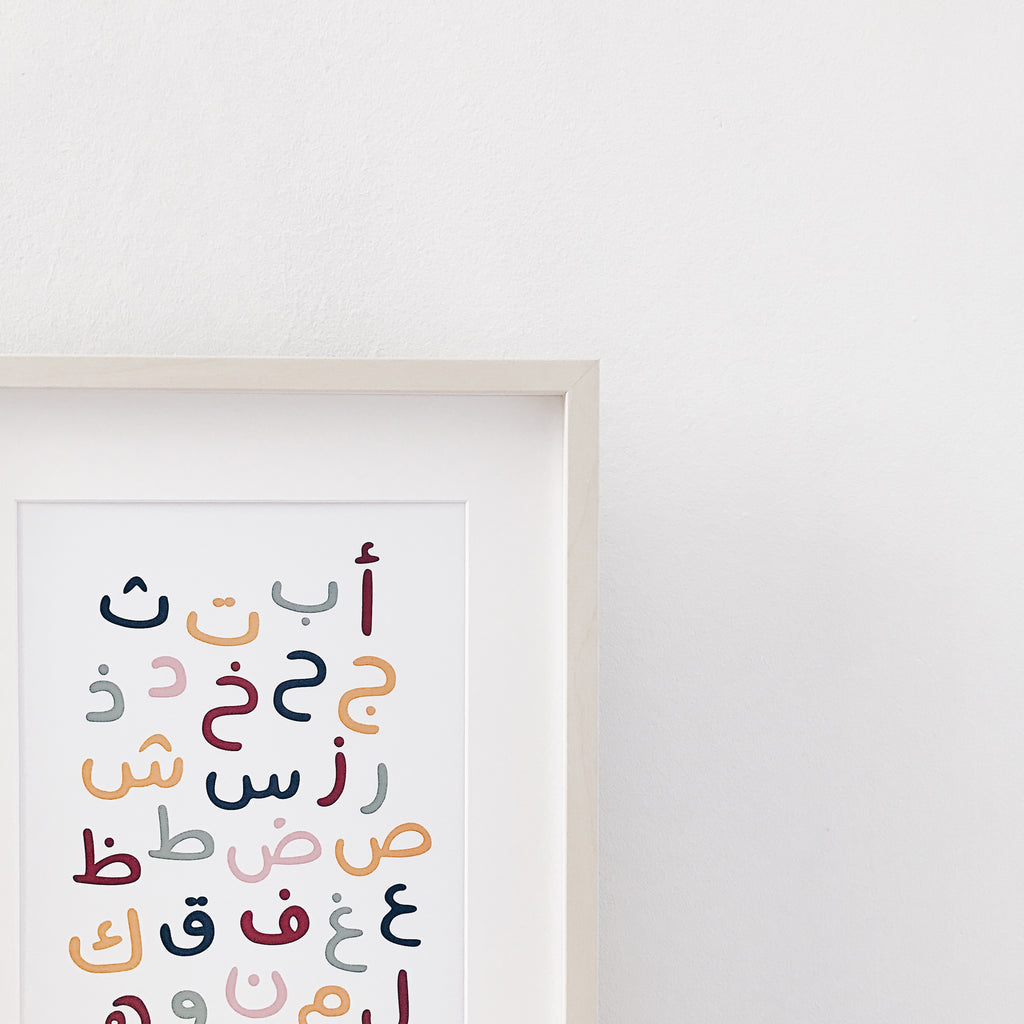 أ ب ت ث
ج ح خ د ذ
ر ز س ش
ص ض ط ظ
ع غ ف ق ك
ل م ن و ه